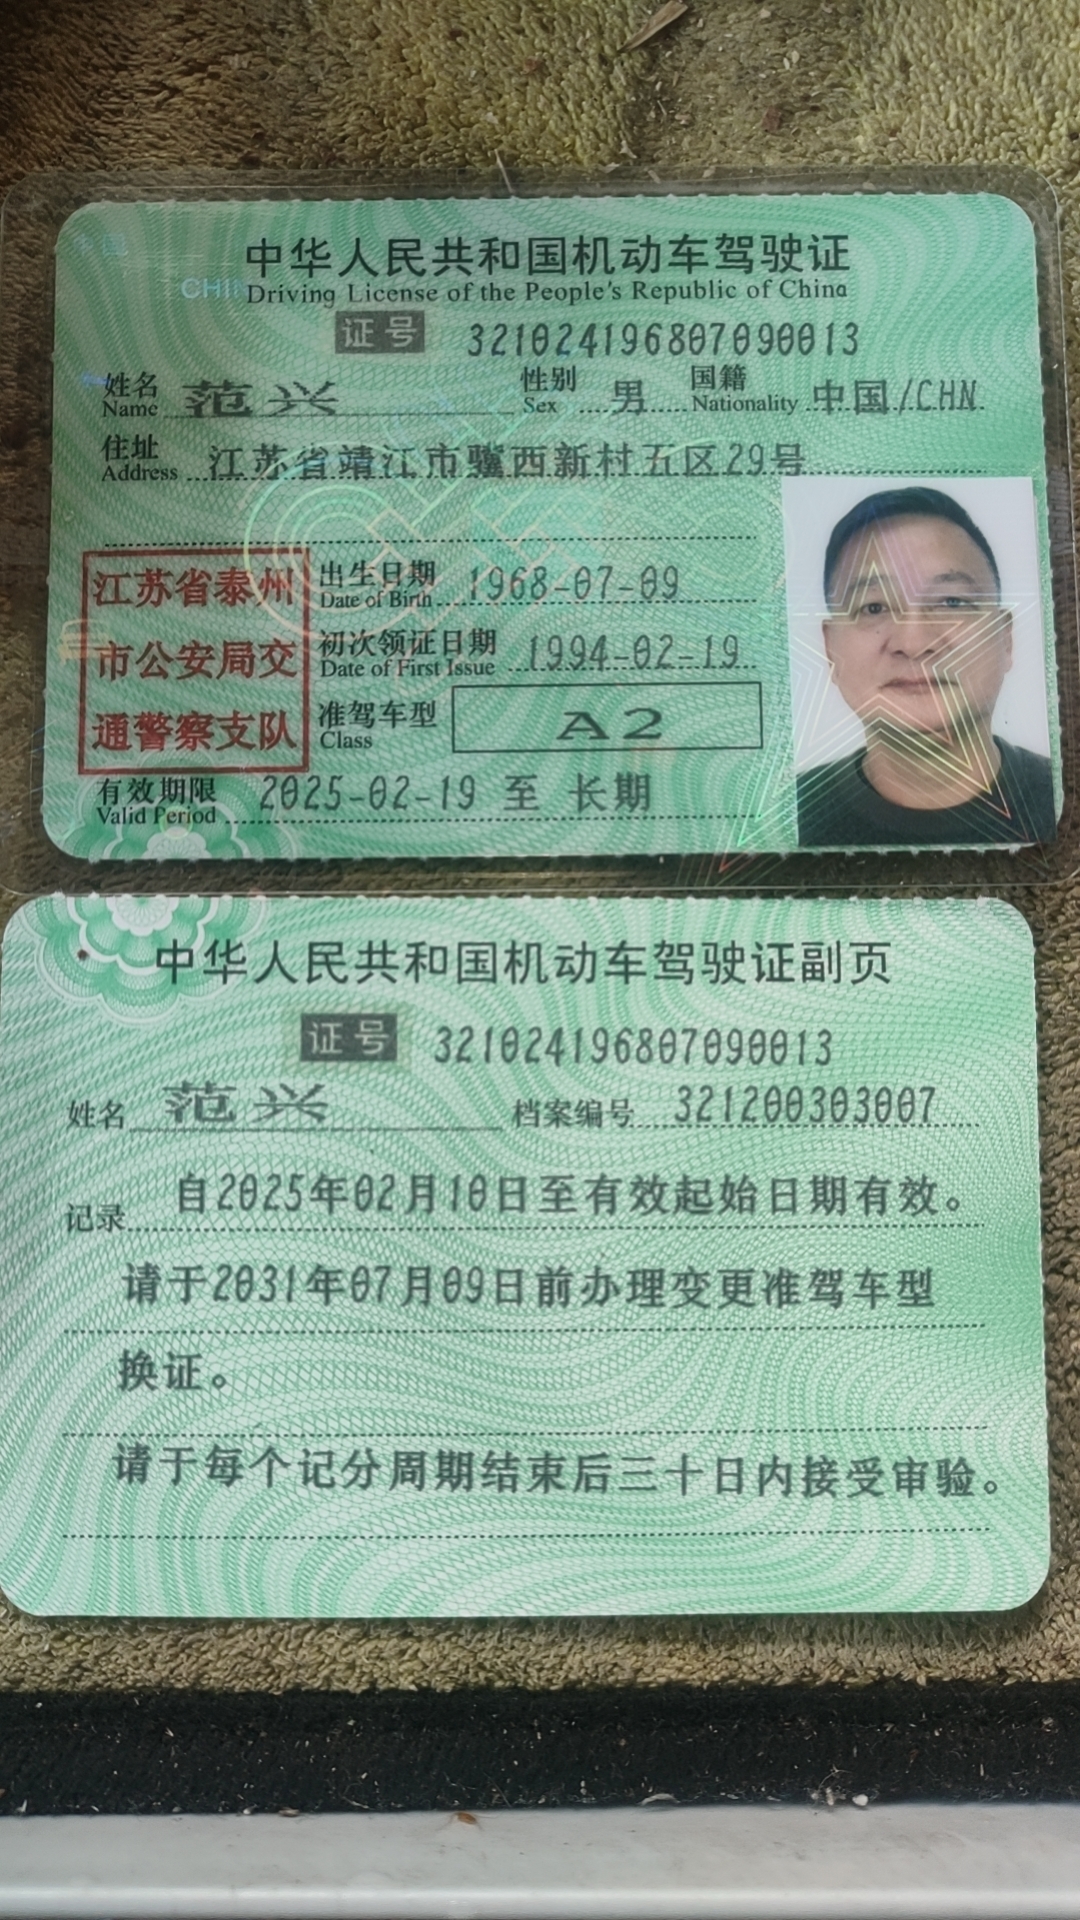 中华人民共和国机动车驾驶证
Driving License of the People's Republic of China
证号 321024196807090013
姓名 范兴 性别 男 国籍 中国/CHN
Name Sex Nationality
住址 江苏省靖江市骥西新村五区29号
Address
江苏省泰州
市公安局交
通警察支队
出生日期 1968-07-09
Date of Birth
初次领证日期 1994-02-19
Date of First Issue
准驾车型 A2
Class
有效期限 2025-02-19 至 长期
Valid Period
中华人民共和国机动车驾驶证副页
证号 321024196807090013
姓名 范兴 档案编号 321200303007
记录 自2025年02月10日至有效起始日期有效。
请于2031年07月09日前办理变更准驾车型
换证。
请于每个记分周期结束后三十日内接受审验。